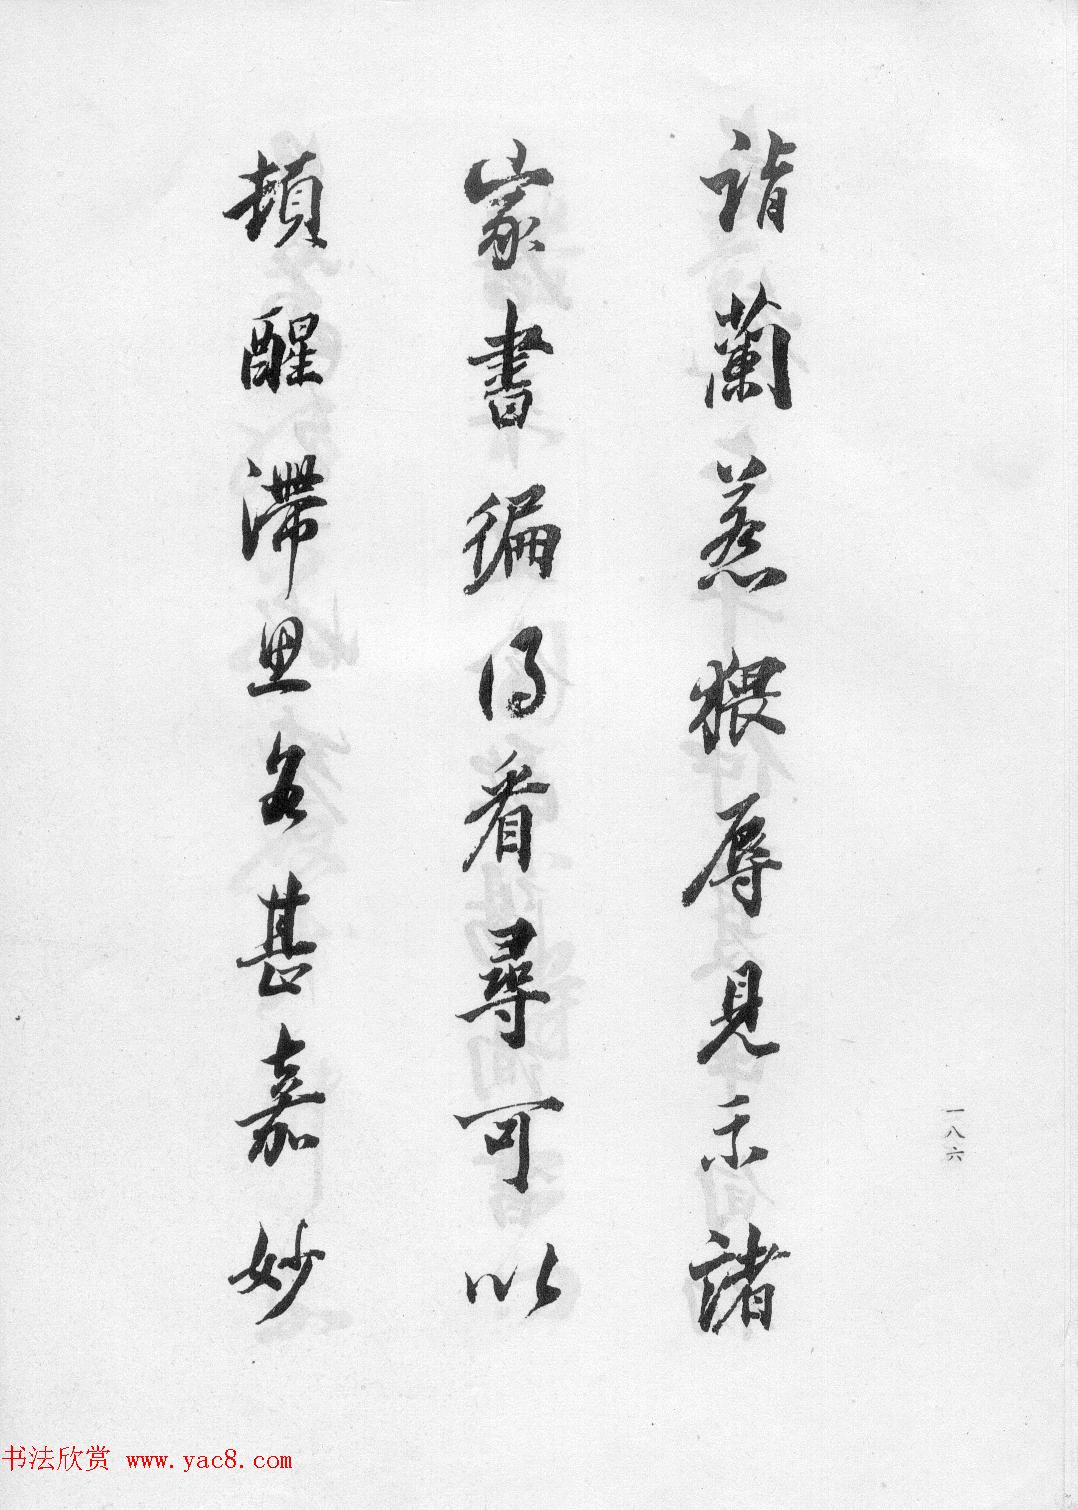 詣蘭惹猥辱見示諸
家書徧得看尋可以
頓醒滯思甚嘉妙
一八六
书法欣赏 www.yac8.com